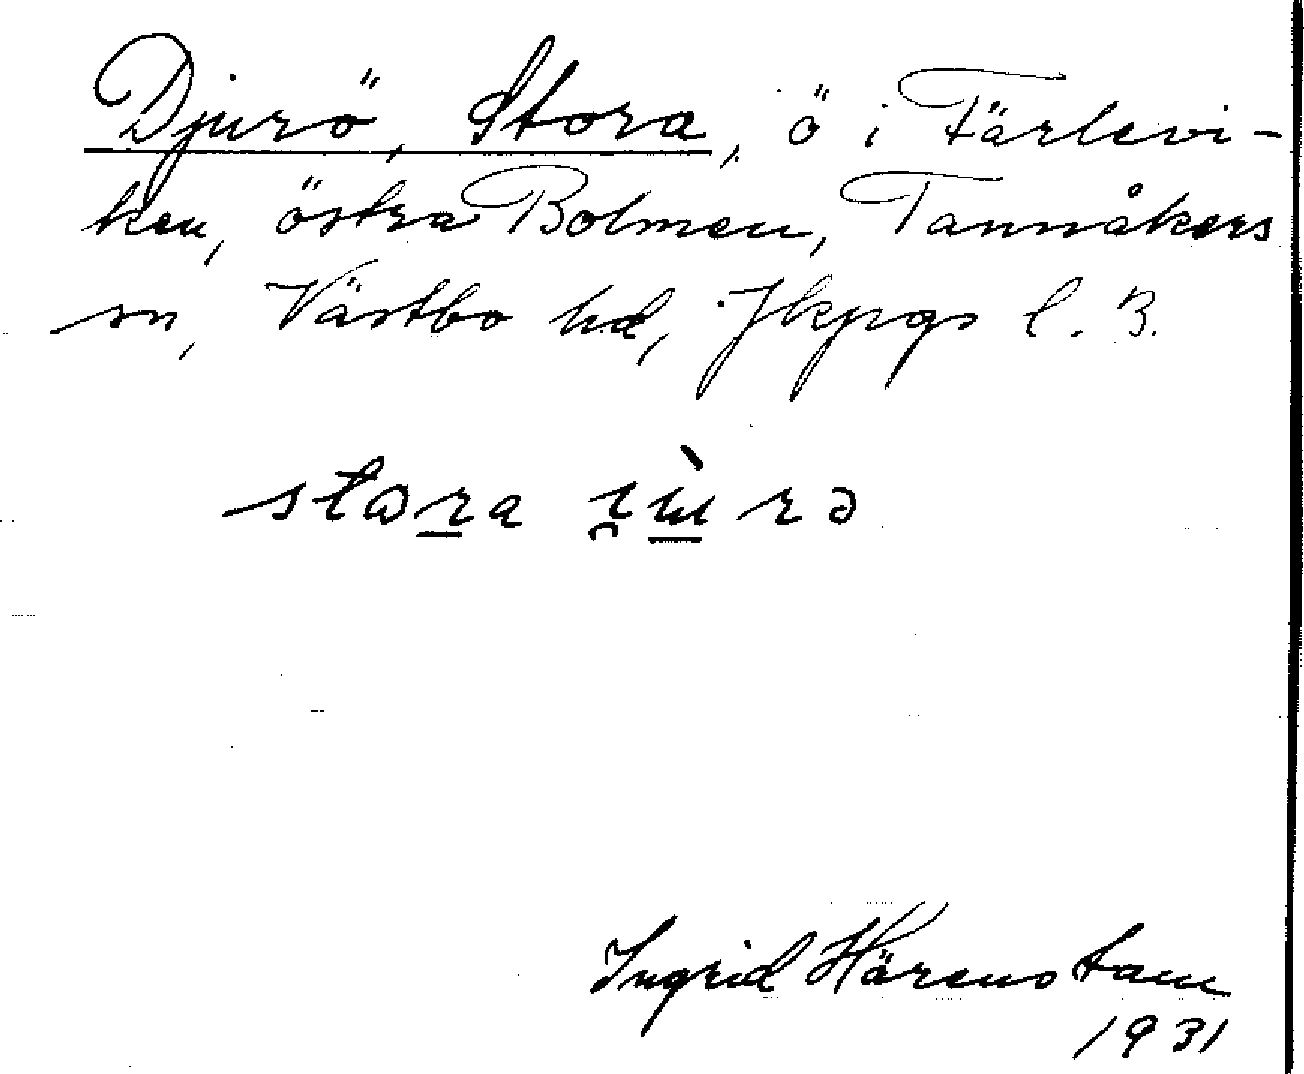 Djurö, Stora, ö i Färlevi-
ken, östra Bolmen, Tannåkers
sn, Västbo hd, Jkpgs l. 3.
Ingrid Härenstam
1931